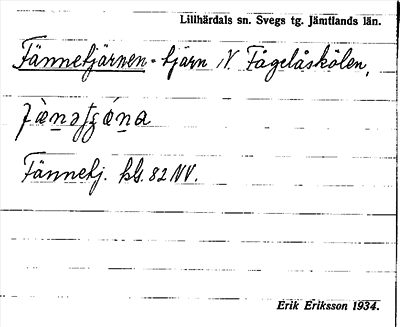 Lillhärdals sn. Svegs tg. Jämtlands län.
Fännetjärnen - tjärn N Fågelåskölen,
Fännetj. kbl. 82 NV.
Erik Eriksson 1934.